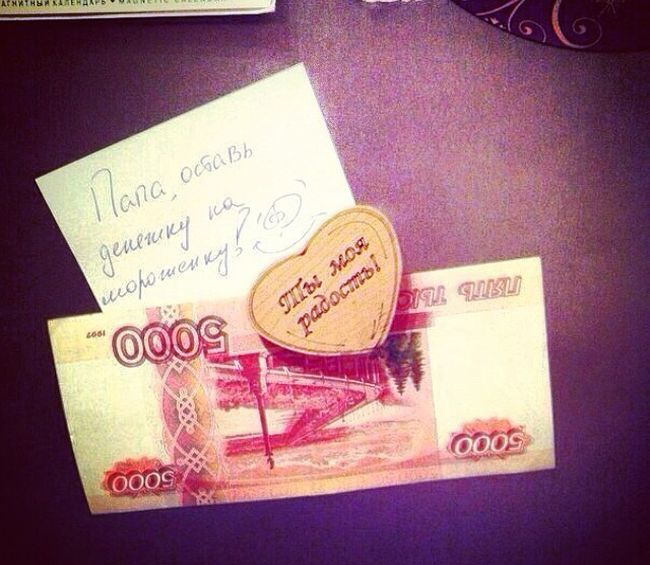 АГНИТНЫЙ КАЛЕНДАРЬ • MAGNETIC CALENDAR
Папа, оставь
денежку на
мороженку?
Ты моя
радость!
ПЯТЬ ТЫС
1997
5000
5000
5000